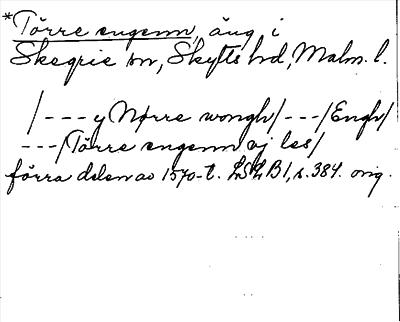 *Törre engenn, äng i
Skegrie sn, Skytts hd, Malm. l.
/--- y Nørre wongh/---/Engh/
---/Törre engenn aj les/
förra delen av 1570-t. LSLB1, s. 384. orig.